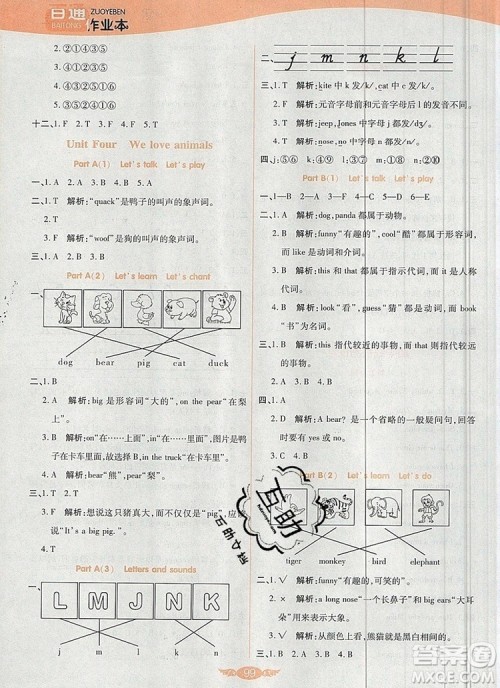 百通
BAITONG
ZUOYEBEN
作业本
2. ②①④③⑤
3. ①③④②⑤
4. ③②⑤①⑥
5. ⑥②④③⑤
十二、1. F 2. T 3. F 4. T
Unit Four We love animals
Part A(1) Let's talk Let's play
一、1. A 2. A 3. B 4. B
二、1. T 解析:“quack”是鸭子的叫声的象声词。
2. T
3. F 解析:“woof”是狗的叫声的象声词。
Part A(2) Let's learn Let's chant
一、
dog bear pig cat duck
二、1. B
2. A 解析:big 是形容词“大的”, on the pear“在梨
上”。
3. B 解析:on“在……上面”,in“在……里面”,图
片是在卡车里面,in the truck“在卡车里”。
4. B 解析:bear“熊”,pear“梨”。
三、1. T 2. T
3. F 解析:想说这只真大,图片是“pig”,应
该说“It's a big pig.”。
4. T
Part A(3) Letters and sounds
一、
L M J N K
j m n k l
二、j m n k l
三、1. T 解析:kite 中 k 和 book 中 k 都发/k/。
2. F 解析:元音字母前和元音字母后 l 的发音不同。
3. T 解析:jeep, Jong 中 j 都发
4. T 解析:nose, no 中字母 n 都发/n/。
四、j:⑤⑥ k:④⑨ l:③⑦ m:①⑧ n:②⑩
Part B(1) Let's talk Let's play
一、1—B 2—A 3—D 4—C
二、1. A 解析:dog,panda 都属于动物。
2. B 解析:funny“有趣的”, cool“酷”都属于形
容词, in 是介词。
3. B 解析:this 和 that 都属于指示代词, it 是人称
代词。
4. A 解析:look“看”, guess“猜”都属于动词, book
“书”为名词。
三、1. B 解析:this 指代较近的事物。
2. A 解析:this 指代较近的事物,而 that 则指代较远
的事物。
四、1. A
2. B 解析:A bear? 是一个省略的一般疑问句,
应用
3. C 4. B
Part B(2) Let's learn Let's do
一、
tiger monkey bird elephant
二、1. √ 解析:funny“有趣的,可笑的”。
2. √ 解析:a long nose“一个长鼻子”和 big ears“大耳
朵”用来表示大象。
3. √ 解析:从颜色上看,熊猫就是黑白相间的。
互助
互动助手
99
答案圈
MXQE.COM